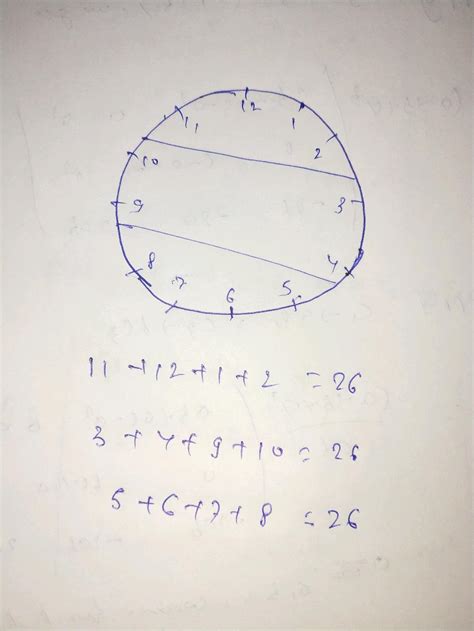 12
11 1
10 2
9 3
8 4
7 5
6
11 + 12 + 1 + 2 = 26
3 + 4 + 9 + 10 = 26
5 + 6 + 7 + 8 = 26